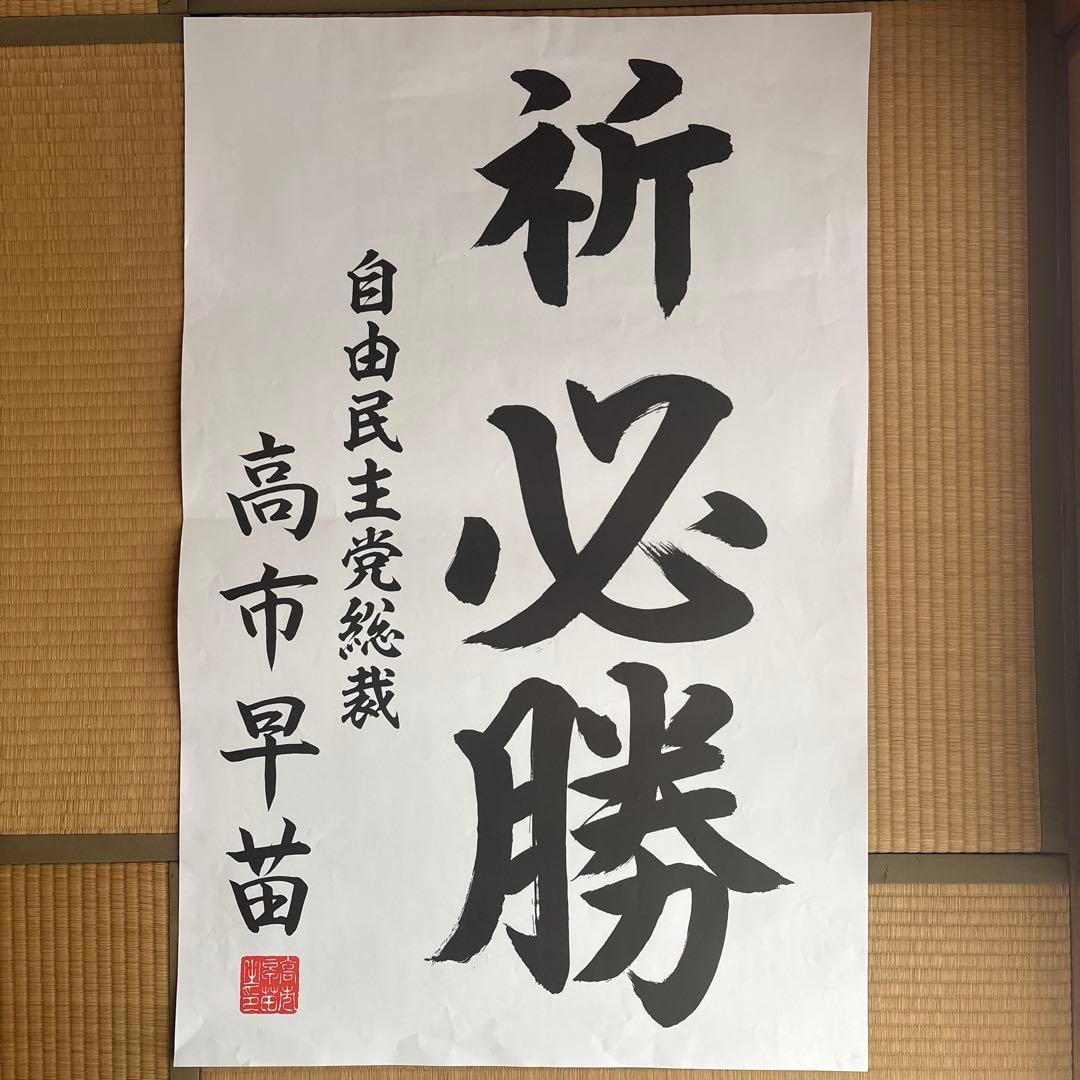 祈必勝
自由民主党総裁
高市早苗
高市早苗之印